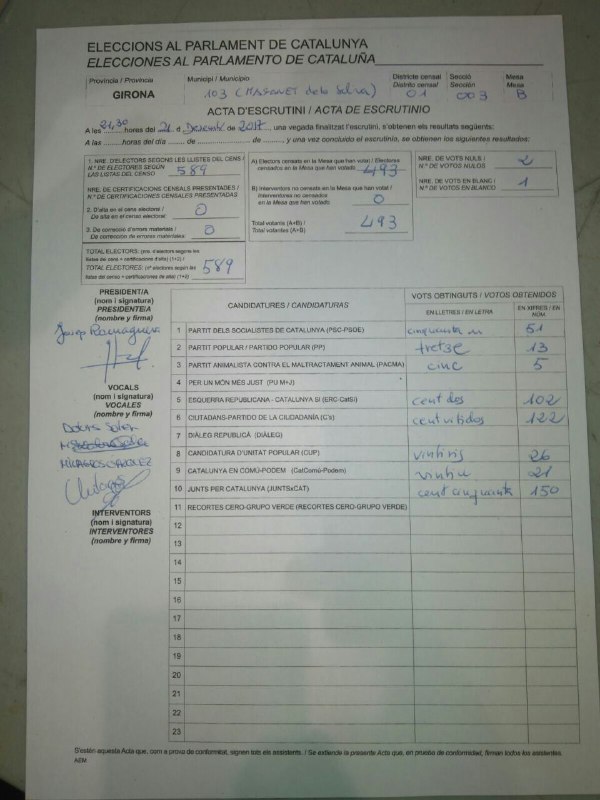 ELECCIONS AL PARLAMENT DE CATALUNYA
ELECCIONES AL PARLAMENTO DE CATALUÑA
Província / Provincia
GIRONA
Municipi / Municipio
103 (MAÇANET de la Selva)
Districte censal
Distrito censal
01
Secció
Sección
003
Mesa
Mesa
B
ACTA D'ESCRUTINI / ACTA DE ESCRUTINIO
A les 21,30 hores del 21 d Desembre de 2017, una vegada finalitzat l'escrutini, s'obtenen els resultats següents:
A las horas del día de de y una vez concluido el escrutinio, se obtienen los siguientes resultados:
1. NRE. D'ELECTORS SEGONS LES LLISTES DEL CENS /
N.º DE ELECTORES SEGÚN
LAS LISTAS DEL CENSO 589
NRE. DE CERTIFICACIONS CENSALS PRESENTADES /
N.º DE CERTIFICACIONES CENSALES PRESENTADAS
2. D'alta en el cens electoral /
De alta en el censo electoral: 0
3. De correcció d'errors materials /
De corrección de errores materiales: 0
TOTAL ELECTORS: (nre. d'electors segons les
llistes del cens + certificacions d'alta) (1+2) /
TOTAL ELECTORES: (nº electores según las
listas del censo + certificaciones de alta) (1+2) 589
A) Electors censats en la Mesa que han votat / Electores
censados en la Mesa que han votado: 493
B) Interventors no censats en la Mesa que han votat /
Interventores no censados en la
Mesa que han votado: 0
Total votants (A+B) /
Total votantes (A+B) 493
NRE. DE VOTS NULS /
N.º DE VOTOS NULOS 2
NRE. DE VOTS EN BLANC /
N.º DE VOTOS EN BLANCO 1
PRESIDENT/A
(nom i signatura)
PRESIDENTE/A
(nombre y firma)
Josep
VOCALS
(nom i signatura)
VOCALES
(nombre y firma)
INTERVENTORS
(nom i signatura)
INTERVENTORES
(nombre y firma)
CANDIDATURES / CANDIDATURAS
VOTS OBTINGUTS / VOTOS OBTENIDOS
EN LLETRES / EN LETRA
EN XIFRES / EN NÚM.
1 PARTIT DELS SOCIALISTES DE CATALUNYA (PSC-PSOE) cinquanta un 51
2 PARTIT POPULAR / PARTIDO POPULAR (PP) tretze 13
3 PARTIT ANIMALISTA CONTRA EL MALTRACTAMENT ANIMAL (PACMA) cinc 5
4 PER UN MÓN MÉS JUST (PU M+J)
5 ESQUERRA REPUBLICANA - CATALUNYA SÍ (ERC-CatSí) cent dos 102
6 CIUTADANS-PARTIDO DE LA CIUDADANÍA (C's) cent vintidos 122
7 DIÀLEG REPUBLICÀ (DIÀLEG)
8 CANDIDATURA D'UNITAT POPULAR (CUP) vintisis 26
9 CATALUNYA EN COMÚ-PODEM (CatComú-Podem) vintiu 21
10 JUNTS PER CATALUNYA (JUNTSxCAT) cent cinquanta 150
11 RECORTES CERO-GRUPO VERDE (RECORTES CERO-GRUPO VERDE)
12
13
14
15
16
17
18
19
20
21
22
23
S'estén aquesta Acta que, com a prova de conformitat, signen tots els assistents. / Se extiende la presente Acta que, en prueba de conformidad, firman todos los asistentes.
AEM